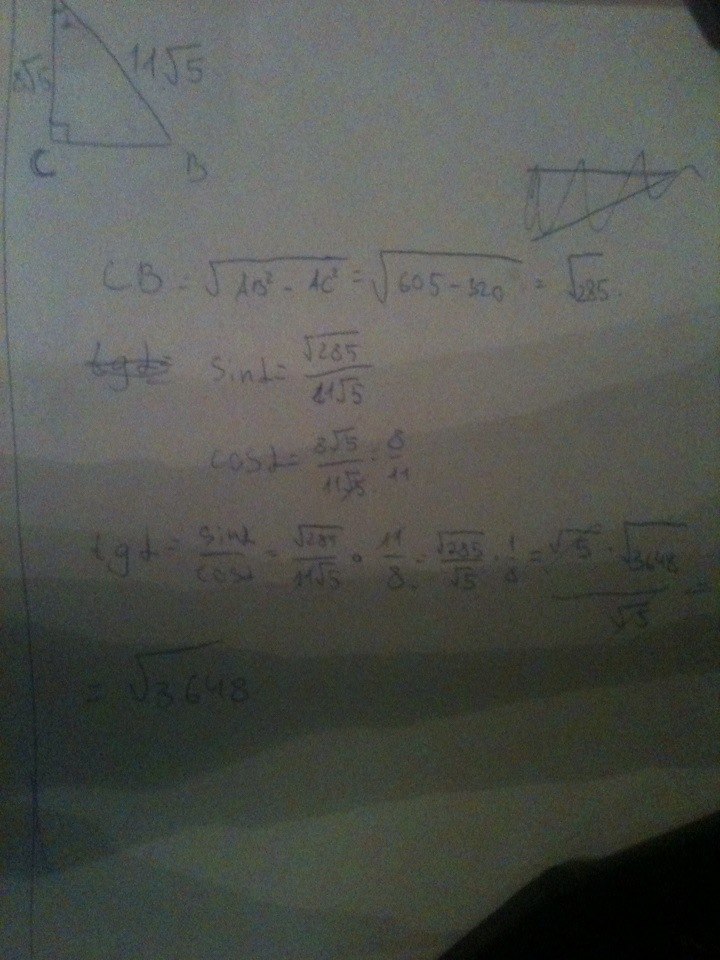 11√5
C
B
CB = √AB² - AC² = √605 - 320 = √285.
sin α = √285 / 11√5
cos α = 8√5 / 11√5 = 8 / 11
tg α = sin α / cos α = √285 / 11√5 · 11 / 8 = √285 / √5 · 1 / 8 = √5 · √3648 / √5 =
= √3648